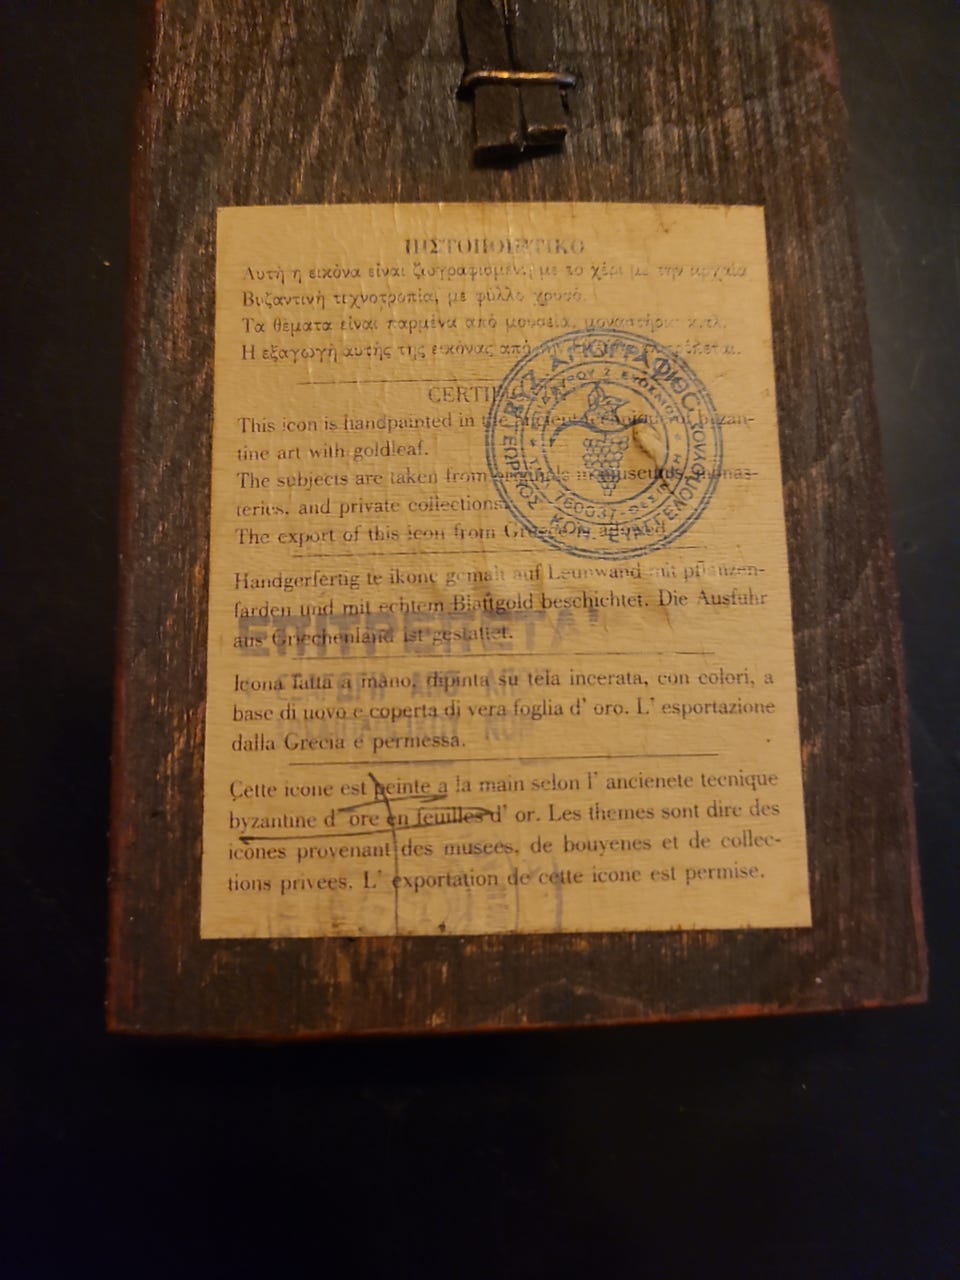 ΠΙΣΤΟΠΟΙΗΤΙΚΟ
Αυτή η εικόνα είναι ζωγραφισμένη με το χέρι με την αρχαία
Βυζαντινή τεχνοτροπία, με φύλλο χρυσό.
Τα θέματα είναι παρμένα από μουσεία, μοναστήρια κ.τ.λ.
Η εξαγωγή αυτής της εικόνας από την
CERTI
This icon is handpainted in the ancient technique of byzan-
tine art with goldleaf.
The subjects are taken from originals in museums, monas-
teries, and private collections.
The export of this icon from Greece is allowed
Handgerfertig te ikone gemalt auf Leunwand mit pflanzen-
farden und mit echtem Blattgold beschichtet. Die Ausfuhr
aus Griechenland ist gestattet.
ΕΠΙΤΡΕΠΕΤΑΙ
Icona fatta a mano, dipinta su tela incerata, con colori, a
base di uovo e coperta di vera foglia d' oro. L' esportazione
dalla Grecia e permessa.
Cette icone est peinte a la main selon l' ancienete tecnique
byzantine d' ore en feuilles d' or. Les themes sont dire des
icones provenant des musees, de bouyenes et de collec-
tions privees. L' exportation de cette icone est permise.